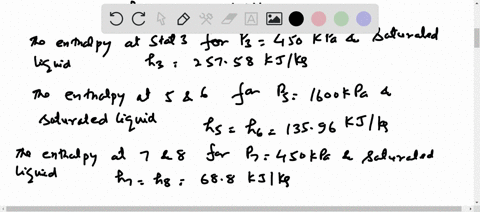 The enthalpy at Stat 3 for P3 = 450 KPa & Saturated
liquid h3 = 257.58 KJ/kg
The enthalpy at 5 & 6 for P5 = 1600 kPa &
saturated liquid h5 = h6 = 135.96 KJ/kg
The enthalpy at 7 & 8 for P7 = 450 kPa & Saturated
liquid h7 = h8 = 68.8 KJ/kg